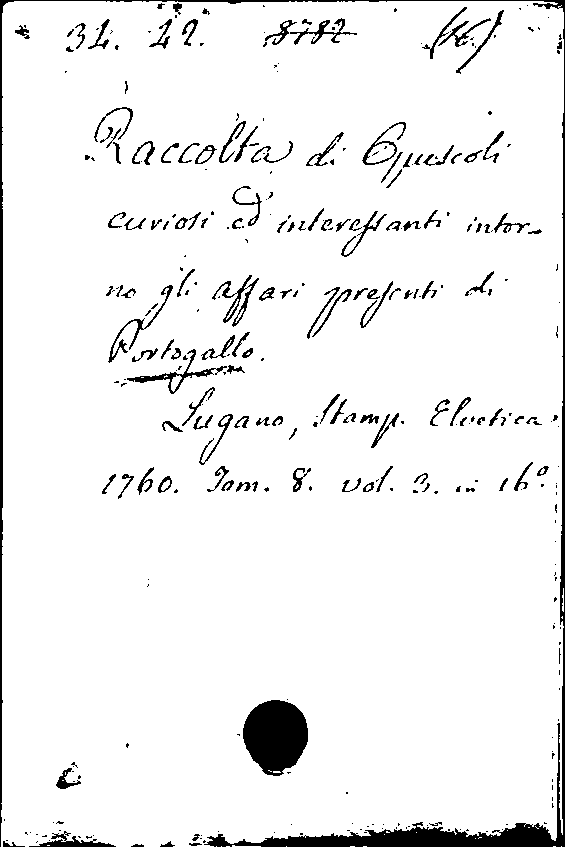 34. 42. 8782 (16)
Raccolta di Opuscoli
curiosi ed interessanti intor-
no gli affari presenti di
Portogallo.
Lugano, Stamp. Elvetica.
1760. Tom. 8. vol. 3. in 16°